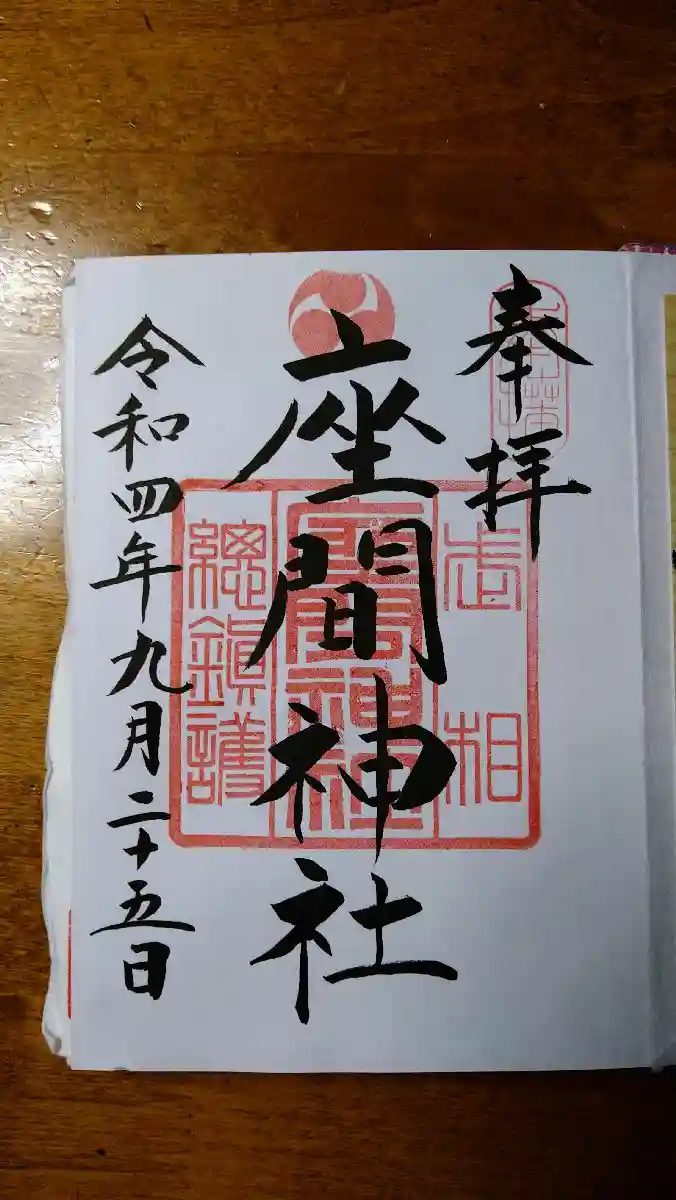 奉拝
相武
座間神社
座間神社
總鎮護
令和四年九月二十五日